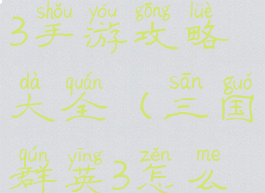 shǒu yóu gōng lüè
3手游攻略
dà quán sān guó
大全(三国
qún yīng zěn me
群英3怎么